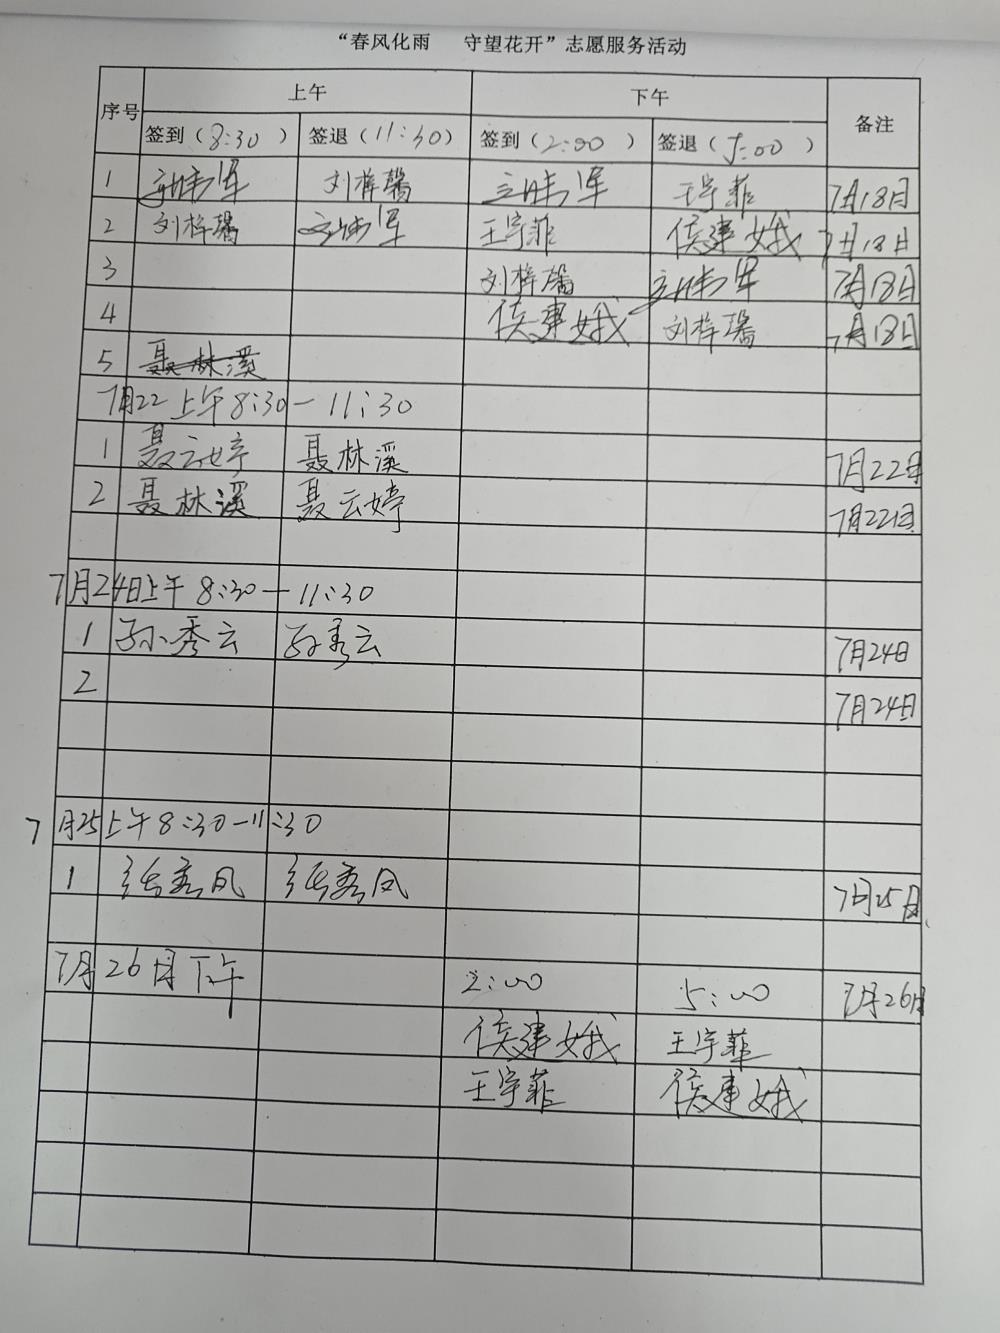 “春风化雨 守望花开”志愿服务活动
序号 上午 下午 备注
签到(8:30) 签退(11:30) 签到(2:00) 签退(5:00)
1 刘梓馨 王宇菲 7月18日
2 刘梓馨 王宇菲 侯建娥 7月18日
3 刘梓馨 7月18日
4 侯建娥 刘梓馨 7月18日
5 聂林溪
7月22上午8:30—11:30
1 聂云婷 聂林溪 7月22日
2 聂林溪 聂云婷 7月22日
7月24日上午 8:30—11:30
1 孙秀云 孙秀云 7月24日
2 7月24日
7月25上午8:30—11:30
1 张秀凤 张秀凤 7月25日
7月26日下午 2:00 5:00 7月26日
侯建娥 王宇菲
王宇菲 侯建娥